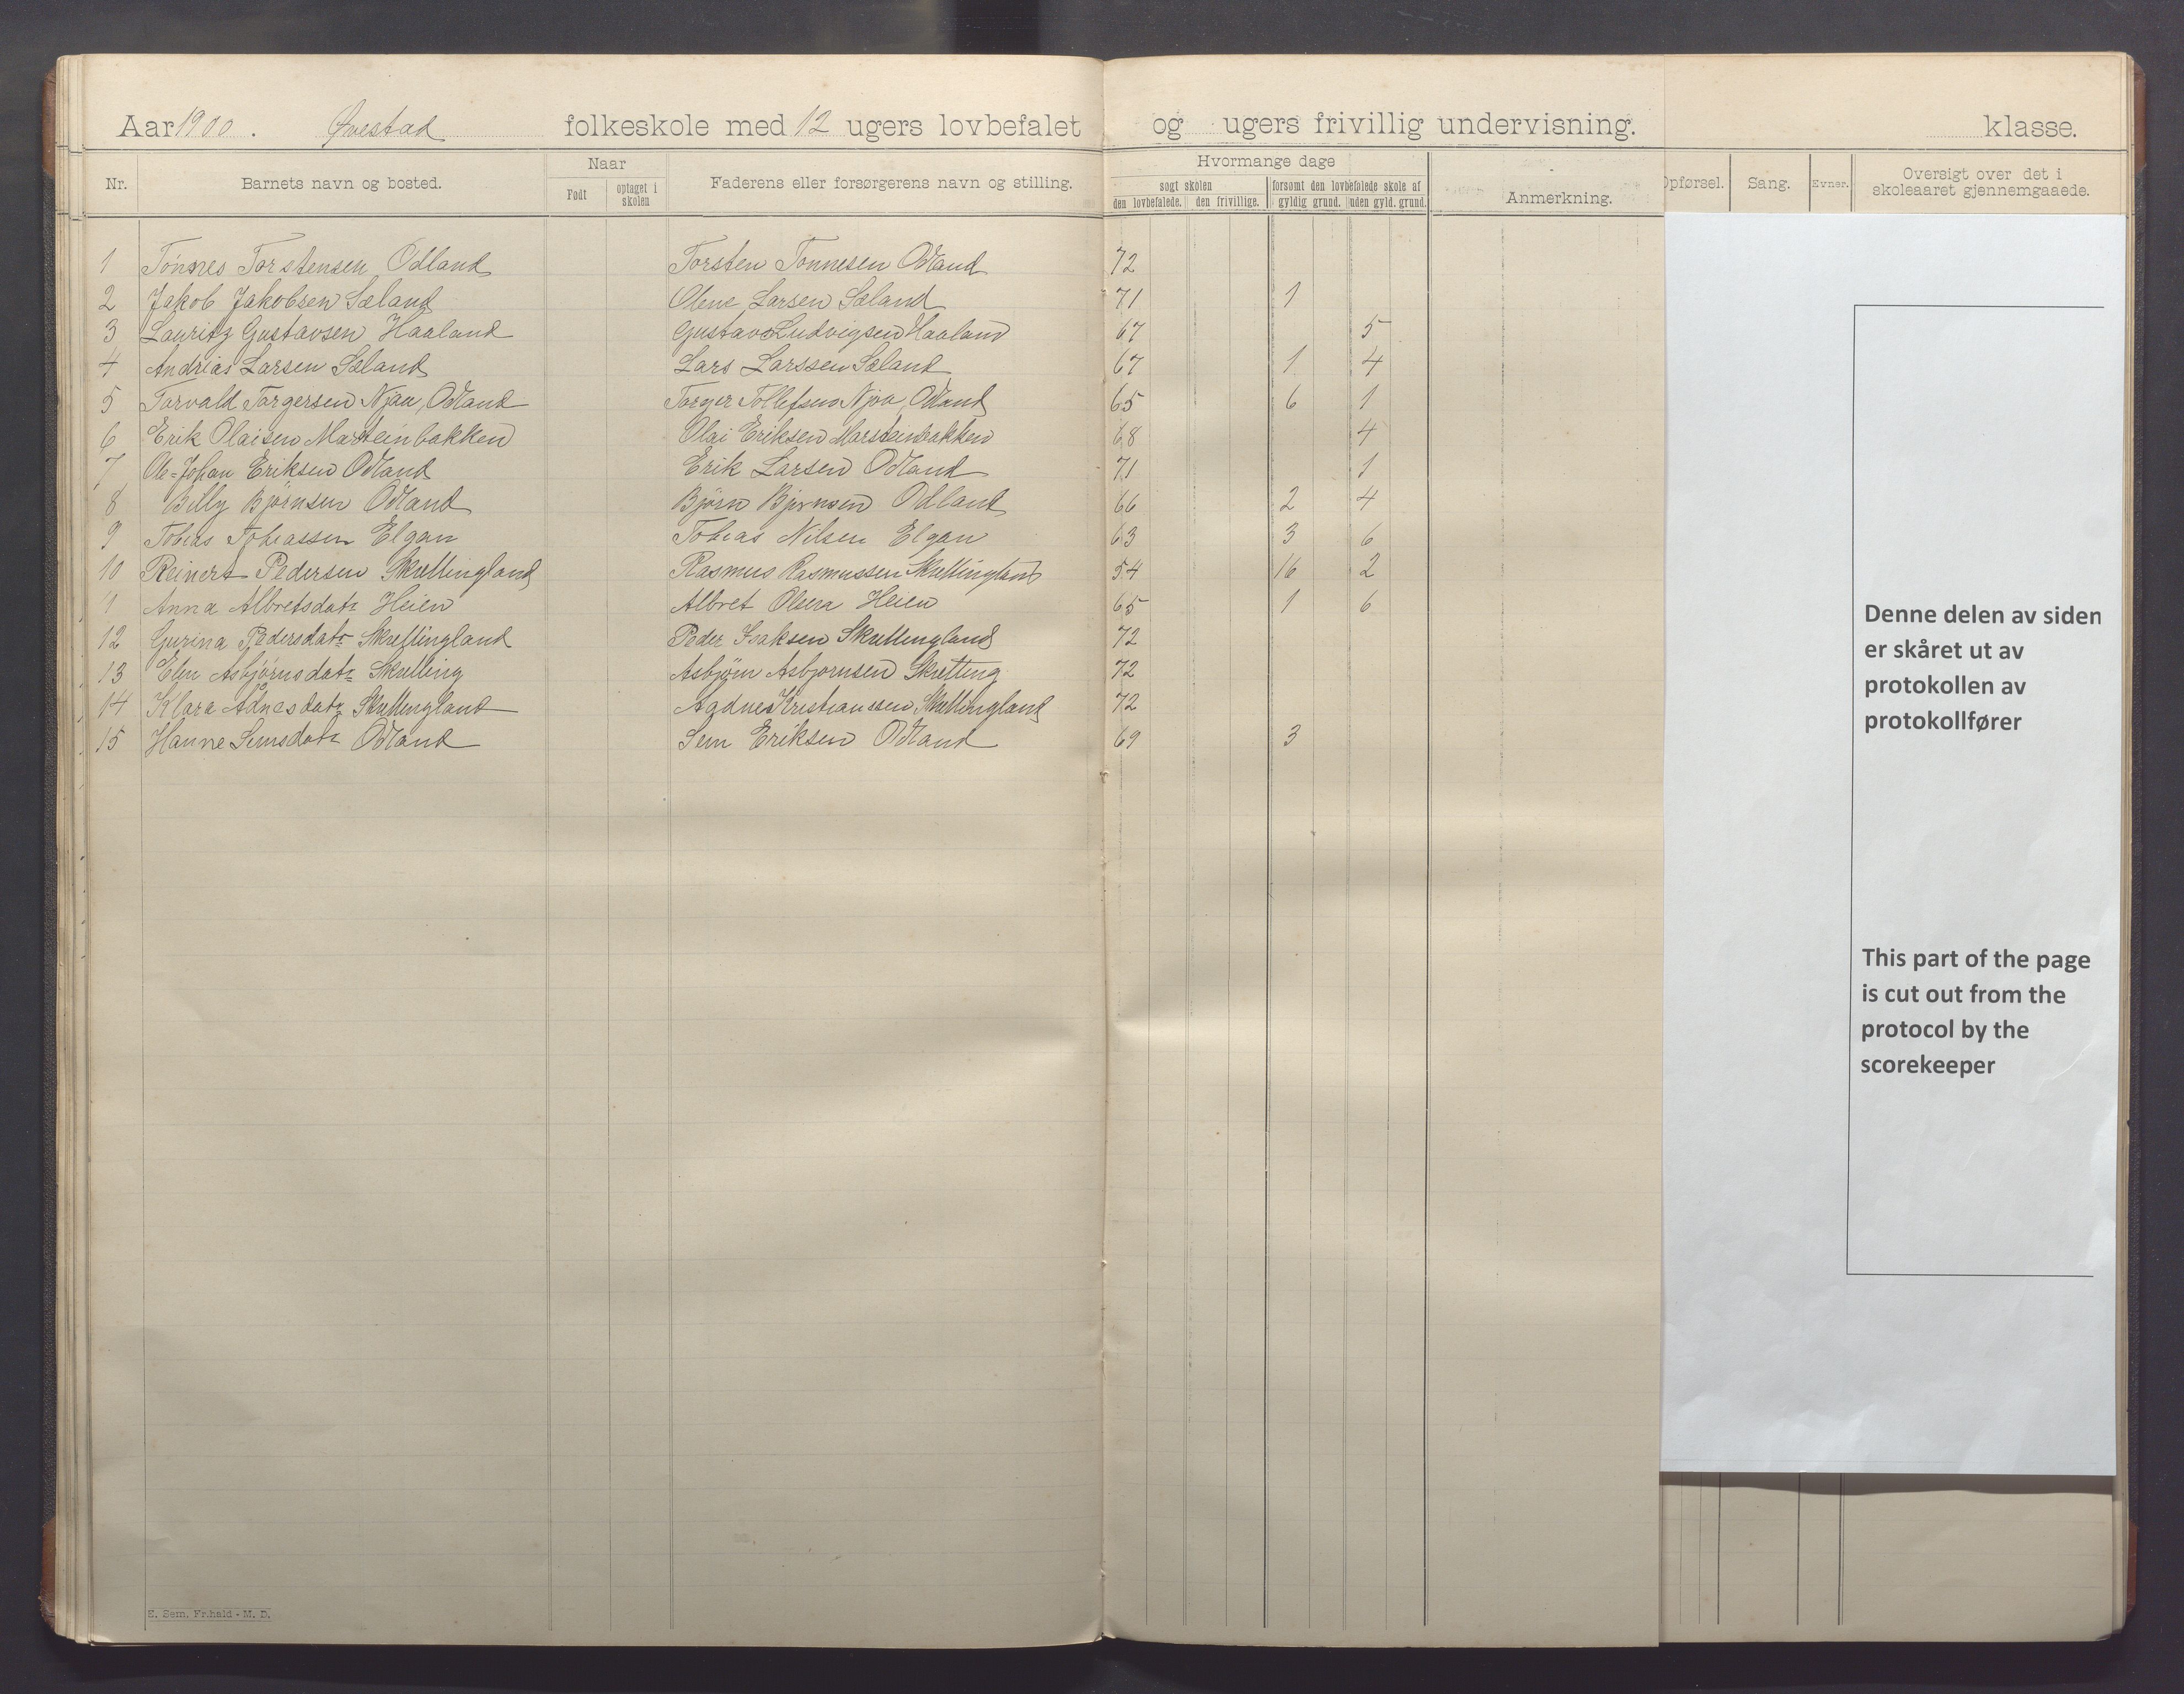 Aar 1900. Øvestad folkeskole med 12 ugers lovbefalet og ugers frivillig undervisning. klasse.
Nr. Barnets navn og bosted. Naar Født optaget i skolen Faderens eller forsørgerens navn og stilling. Hvormange dage søgt skolen den lovbefalede. den frivillige. forsømt den lovbefalede skole af gyldig grund. uden gyld. grund. Anmerkning. Opførsel. Sang. Evner. Oversigt over det i skoleaaret gjennemgaaede.
1 Tønnes Torstensen Odland Torsten Tønnesen Odland 72
2 Jakob Jakobsen Sæland Olene Larsen Sæland 71 1
3 Lauritz Gustavsen Haaland Gustav Ludvigsen Haaland 67 5
4 Andrias Larsen Sæland Lars Larssen Sæland 67 1 4
5 Torvald Torgersen Njaa, Odland Torger Tollefsen Njaa, Odland 65 6 1
6 Erik Olaisen Marsteinbakken Olai Eriksen Marsteinbakken 68 4
7 Ole-Johan Eriksen Odland Erik Larsen Odland 71 1
8 Billy Bjørnsen Odland Bjørn Bjørnsen Odland 66 2 4
9 Tobias Tobiassen Elgan Tobias Nilsen Elgan 63 3 6
10 Reinert Pedersen Skretlingland Rasmus Rasmussen Skretlingland 54 16 2
11 Anna Albretsdatr Heien Albret Olsen Heien 65 1 6
12 Gurina Pedersdatr Skretlingland Peder Isaksen Skretlingland 72
13 Elen Asbjørnsdatr Skretting Asbjørn Asbjørnsen Skretting 72
14 Klara Adnesdatr Skretlingland Aadne Kristianssen Skretlingland 72
15 Hanne Semsdatr Odland Sem Eriksen Odland 69 3
Denne delen av siden
er skåret ut av
protokollen av
protokollfører
This part of the page
is cut out from the
protocol by the
scorekeeper
E. Sem. Fr.hald - M. D.